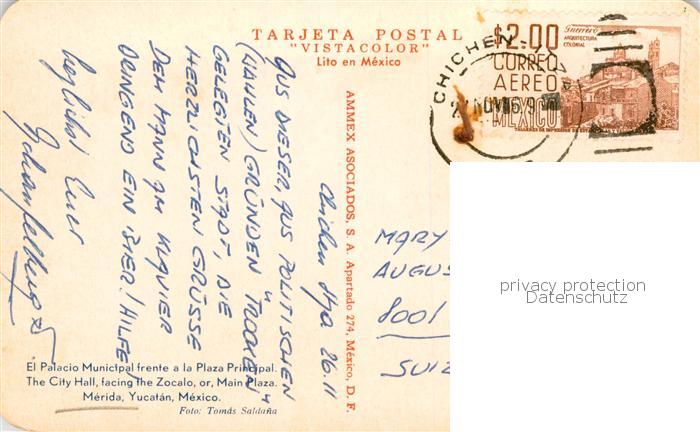 TARJETA POSTAL
"VISTACOLOR"
Lito en México
$2.00
CORREO
AEREO
MEXICO
Guerrero
ARQUITECTURA
COLONIAL
CHICHEN
NOV
AMMEX ASOCIADOS, S. A. Apartado 274, México, D. F.
Chichen Itza 26.11
AUS DIESER, AUS POLITISCHEN
(WAHLEN) GRÜNDEN "TROCKEN"
GELEGTEN STADT, DIE
HERZLICHSTEN GRÜSSE
DEM MANN AM KLAVIER
DRINGEND EIN BIER! HILFE!
herzlichst Euer
MARY
AUGUS
8001
SUIZ
privacy protection
Datenschutz
El Palacio Municipal frente a la Plaza Principal.
The City Hall, facing the Zocalo, or, Main Plaza.
Mérida, Yucatán, México.
Foto: Tomás Saldaña